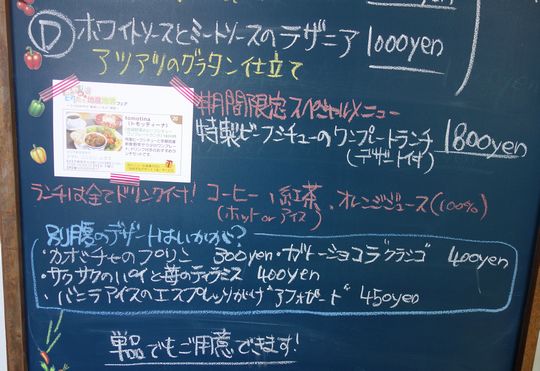 Ⓓ ホワイトソースとミートソースのラザニア 1000yen
アツアツのグラタン仕立て
tomotina
(トモッティーナ)
期間限定スペシャルメニュー
特製ビーフシチューのワンプレートランチ 1800yen
(デザート付)
ランチは全てドリンク付! コーヒー、紅茶、オレンジジュース(100%)
(ホット or アイス)
別腹のデザートはいかが?
・カボッチャのプリン 300yen ・ガトーショコラクラシコ 400yen
・サクサクのパイと苺のティラミス 400yen
・バニラアイスのエスプレッソがけ"アフォガード" 450yen
単品でもご用意できます!